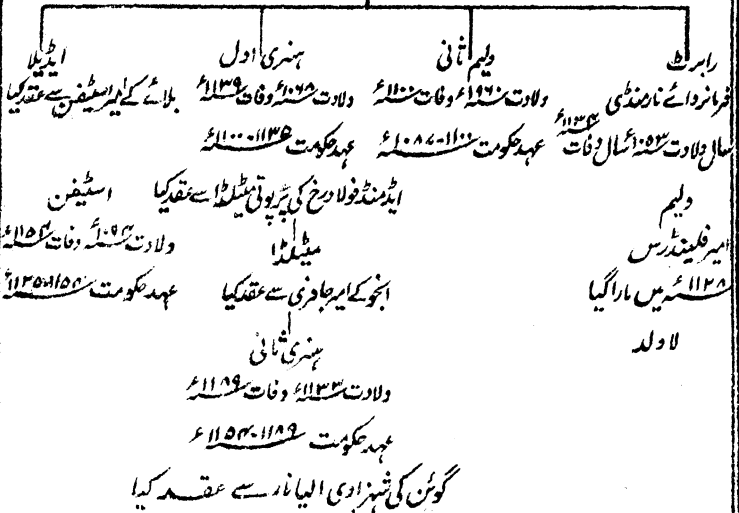 رابرٹ
فرمانروائے نارمنڈی
سال ولادت ۱۰۵۳ء سال وفات ۱۱۳۴ء
ولیم
امیر فلینڈرس
۱۱۲۸ء میں مارا گیا
لاولد
ولیم ثانی
ولادت ۱۹۶۰ء وفات ۱۱۰۰ء
عہد حکومت ۱۱۰۰-۱۰۸۷ء
ہنری اول
ولادت ۱۰۶۸ء وفات ۱۱۳۹ء
عہد حکومت ۱۱۳۵-۱۱۰۰ء
ایڈمنڈ فولادرخ کی پڑپوتی میٹلڈا سے عقد کیا
میٹلڈا
انجو کے امیر جافری سے عقد کیا
ہنری ثانی
ولادت ۱۱۳۳ء وفات ۱۱۸۹ء
عہد حکومت ۱۱۸۹-۱۱۵۴ء
گوئن کی شہزادی الیانار سے عقد کیا
ایڈیلا
بلائے کے امیر اسٹیفن سے عقد کیا
اسٹیفن
ولادت ۱۰۹۴ء وفات ۱۱۵۴ء
عہد حکومت ۱۱۵۴-۱۱۳۵ء